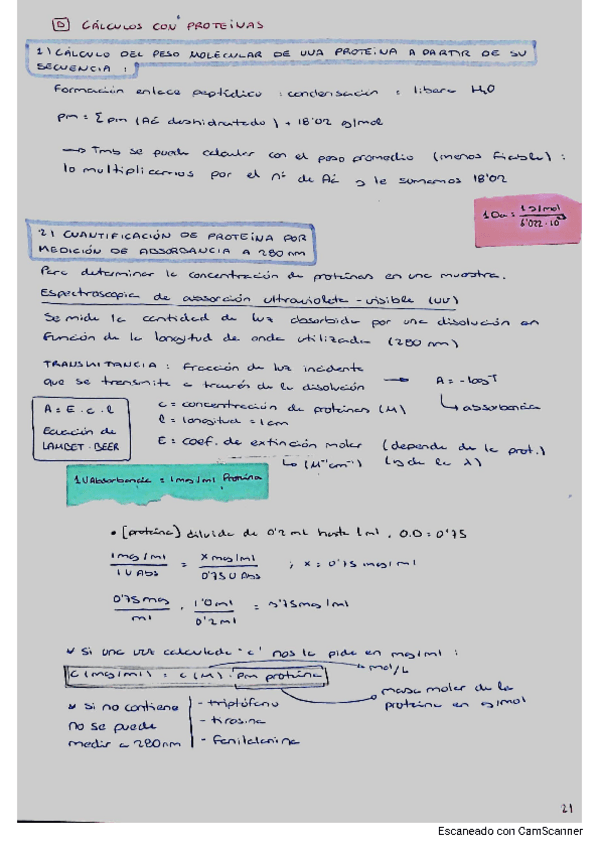 D CÁLCULOS CON PROTEÍNAS
1) CÁLCULO DEL PESO MOLECULAR DE UNA PROTEÍNA A PARTIR DE SU
SECUENCIA :
Formación enlace peptídico : condensación : libera H2O
pm = Σ pm (Aá deshidratado) + 18'02 g/mol
→ Tmb se puede calcular con el peso promedio (menos fiable) :
lo multiplicamos por el nº de Aá y le sumamos 18'02
1 Da = 1 g/mol / 6'022·10²³
2) CUANTIFICACIÓN DE PROTEÍNA POR
MEDICIÓN DE ABSORBANCIA A 280 nm
Para determinar la concentración de proteínas en una muestra.
Espectroscopia de absorción ultravioleta-visible (UV)
Se mide la cantidad de luz absorbida por una disolución en
función de la longitud de onda utilizada (280 nm)
TRANSMITANCIA : fracción de luz incidente
que se transmite a través de la disolución → A = -log T
↳ absorbancia
A = E · c · l
Ecuación de
LAMBET-BEER
c = concentración de proteínas (M)
l = longitud = 1cm
E = coef. de extinción molar (depende de la prot.)
↳ (M⁻¹cm⁻¹) (y de la λ)
1 U Absorbancia = 1mg/ml Proteína
• [proteína] diluida de 0'2 ml hasta 1ml, O.D = 0'75
1mg/ml / 1 U Abs = x mg/ml / 0'75 U Abs ; x = 0'75 mg/ml
0'75 mg / ml · 1'0 ml / 0'2 ml = 3'75mg/ml
Si una vez calculada "c" nos la pide en mg/ml :
c(mg/ml) = c(M) · pm proteína
mol/L
masa molar de la
proteína en g/mol
Si no contiene
no se puede
medir a 280nm
- triptófano
- tirosina
- fenilalanina
21
Escaneado con CamScanner